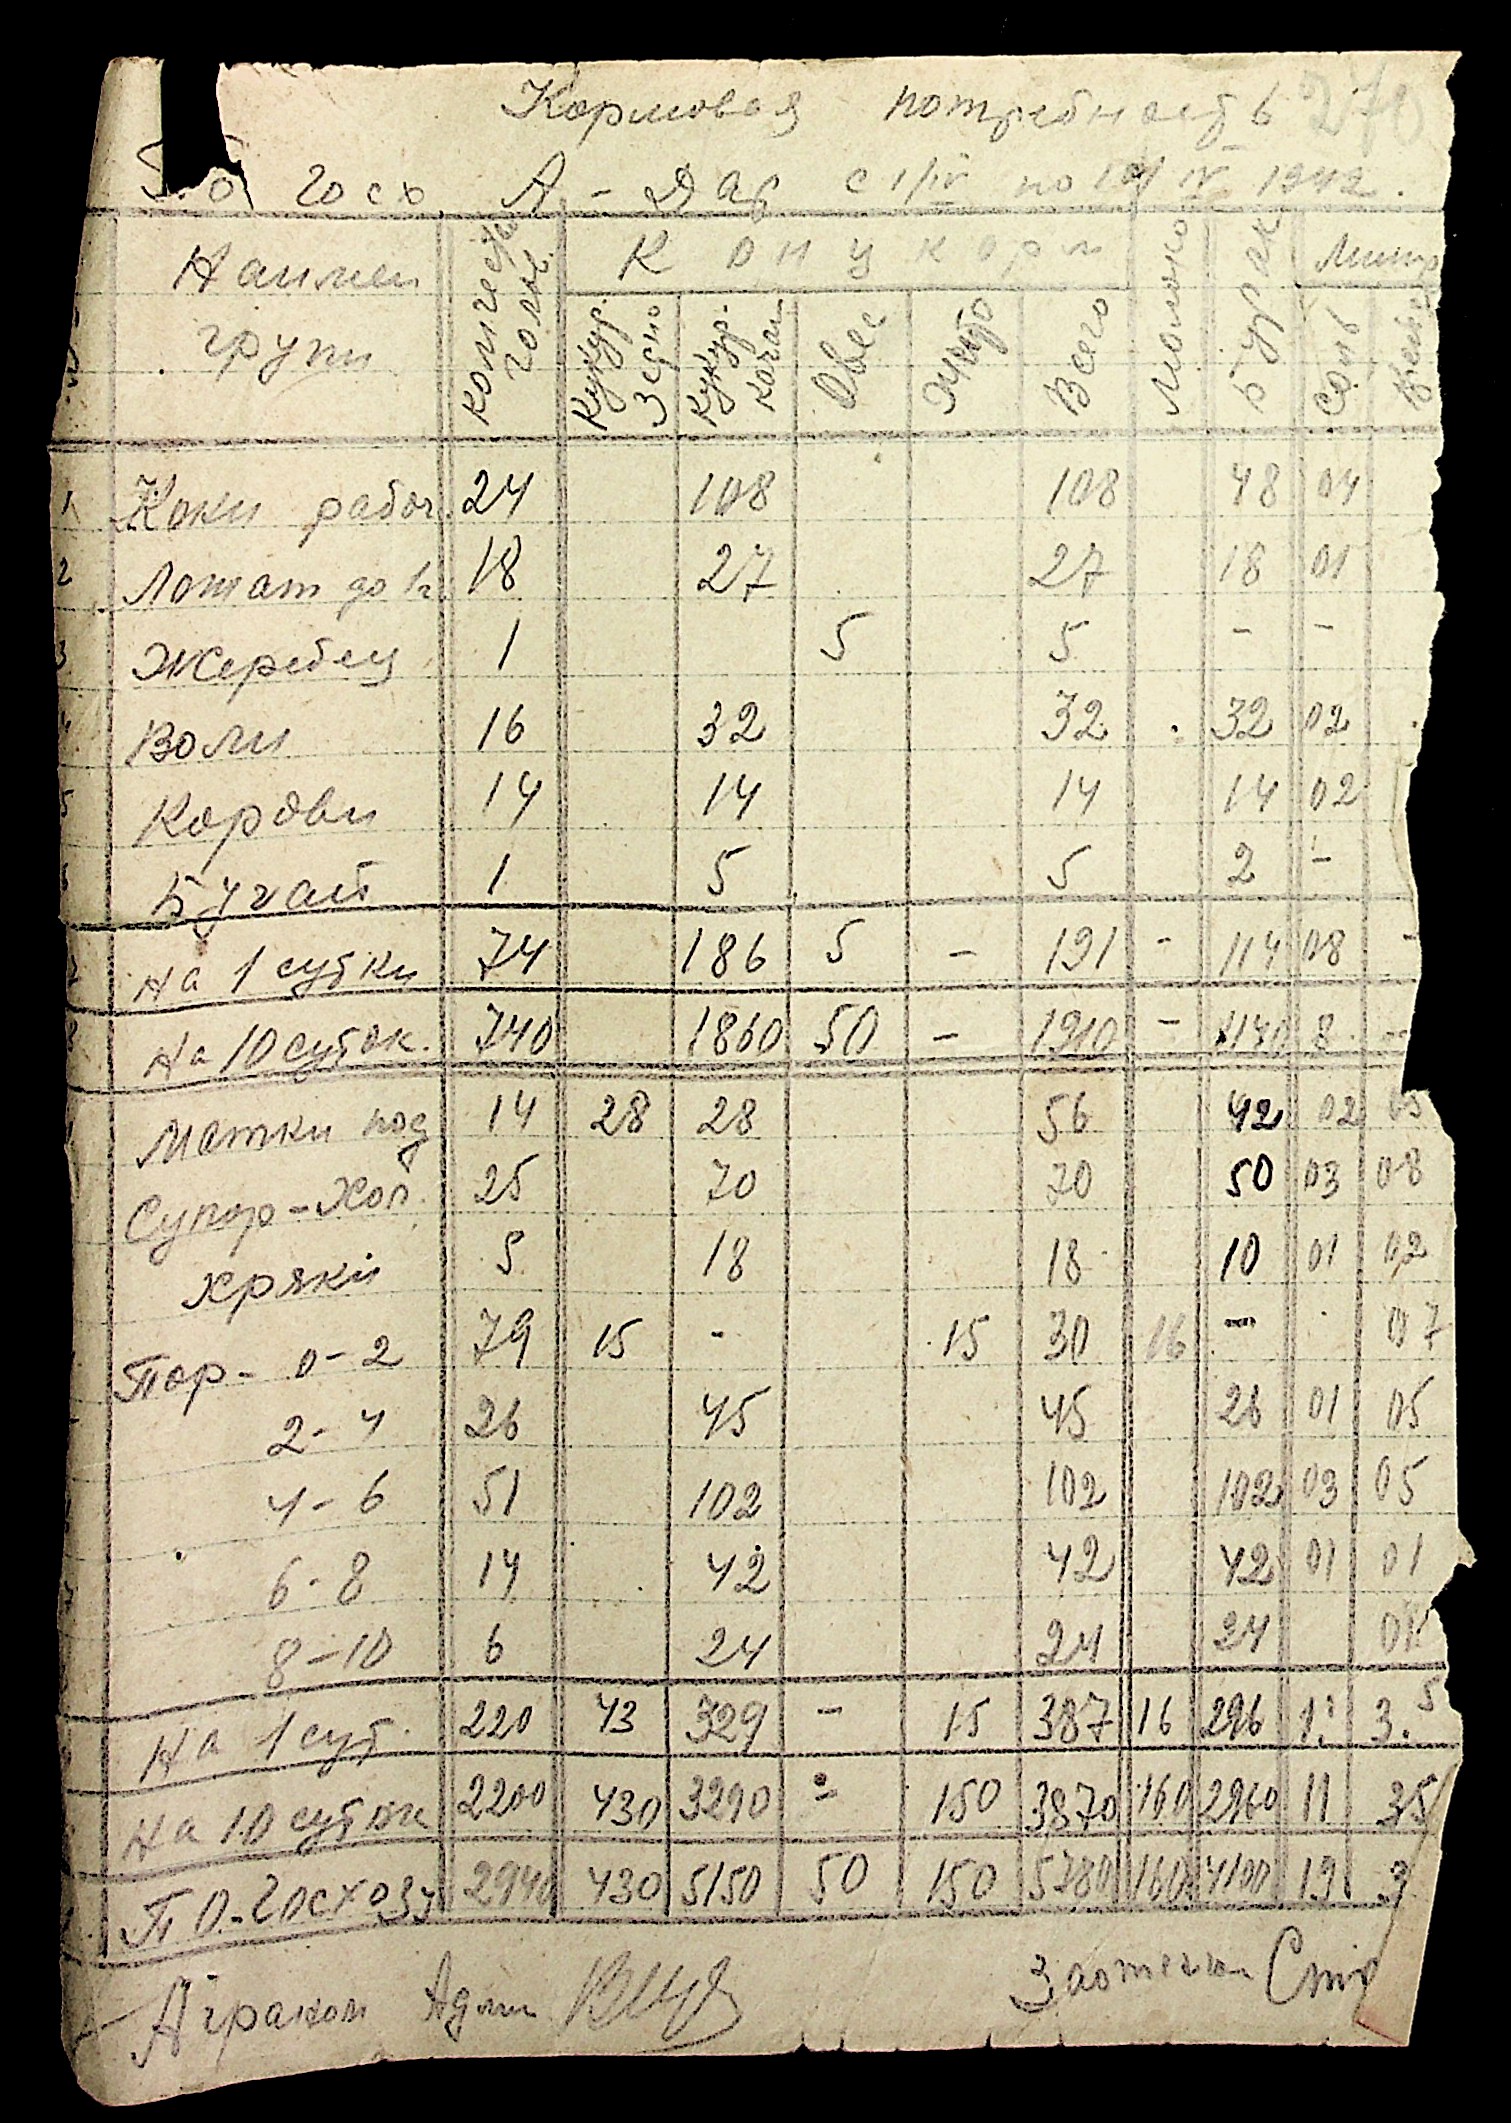 Кормовая потребность 270
по госх. А-Дар с 1/IV по 10/IV 1942.
Наимен групп | количество голов | Концкорм | Молоко | Буряк | Минер
кукур. зерно | кукур. качан | Овес | Всего | Соль
1 Кони рабоч. 24 108 108 48 04
2 Лошат до 1г. 18 27 27 18 01
3 Жеребец 1 5 5 - -
4 Воли 16 32 32 32 02
5 Корови 14 14 14 14 02
6 Бугай 1 5 5 2 -
7 На 1 сутки 74 186 5 - 191 - 114 08 -
8 На 10 суток. 740 1860 50 - 1910 - 1140 8 -
Матки под 14 28 28 56 42 02
Супор-Хол. 25 70 70 50 03 08
Хряки 5 18 18 10 01 02
Пор- 0-2 79 15 - 15 30 16 - 07
2-4 26 45 45 26 01 05
4-6 51 102 102 102 03 05
6-8 14 42 42 42 01 01
8-10 6 24 24 24 01
На 1 сут. 220 43 329 - 15 387 16 296 1.1 3.5
На 10 суток 2200 430 3290 - 150 3870 160 2960 11 35
По-госхозу 2940 430 5150 50 150 5780 160 4100 19 3
Аграном Адам
Заотехник